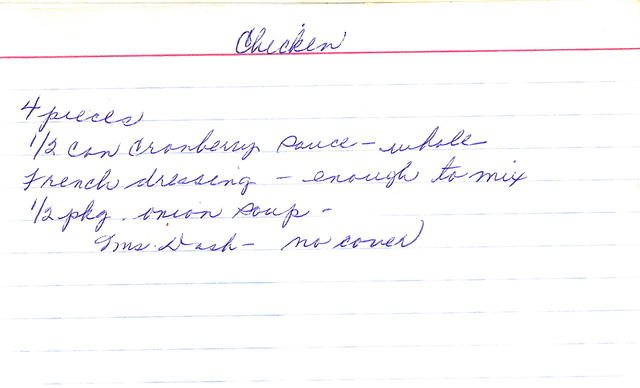 Chicken
4 pieces
1/2 can cranberry sauce - whole
French dressing - enough to mix
1/2 pkg. onion soup -
Mrs. Dash - no cover